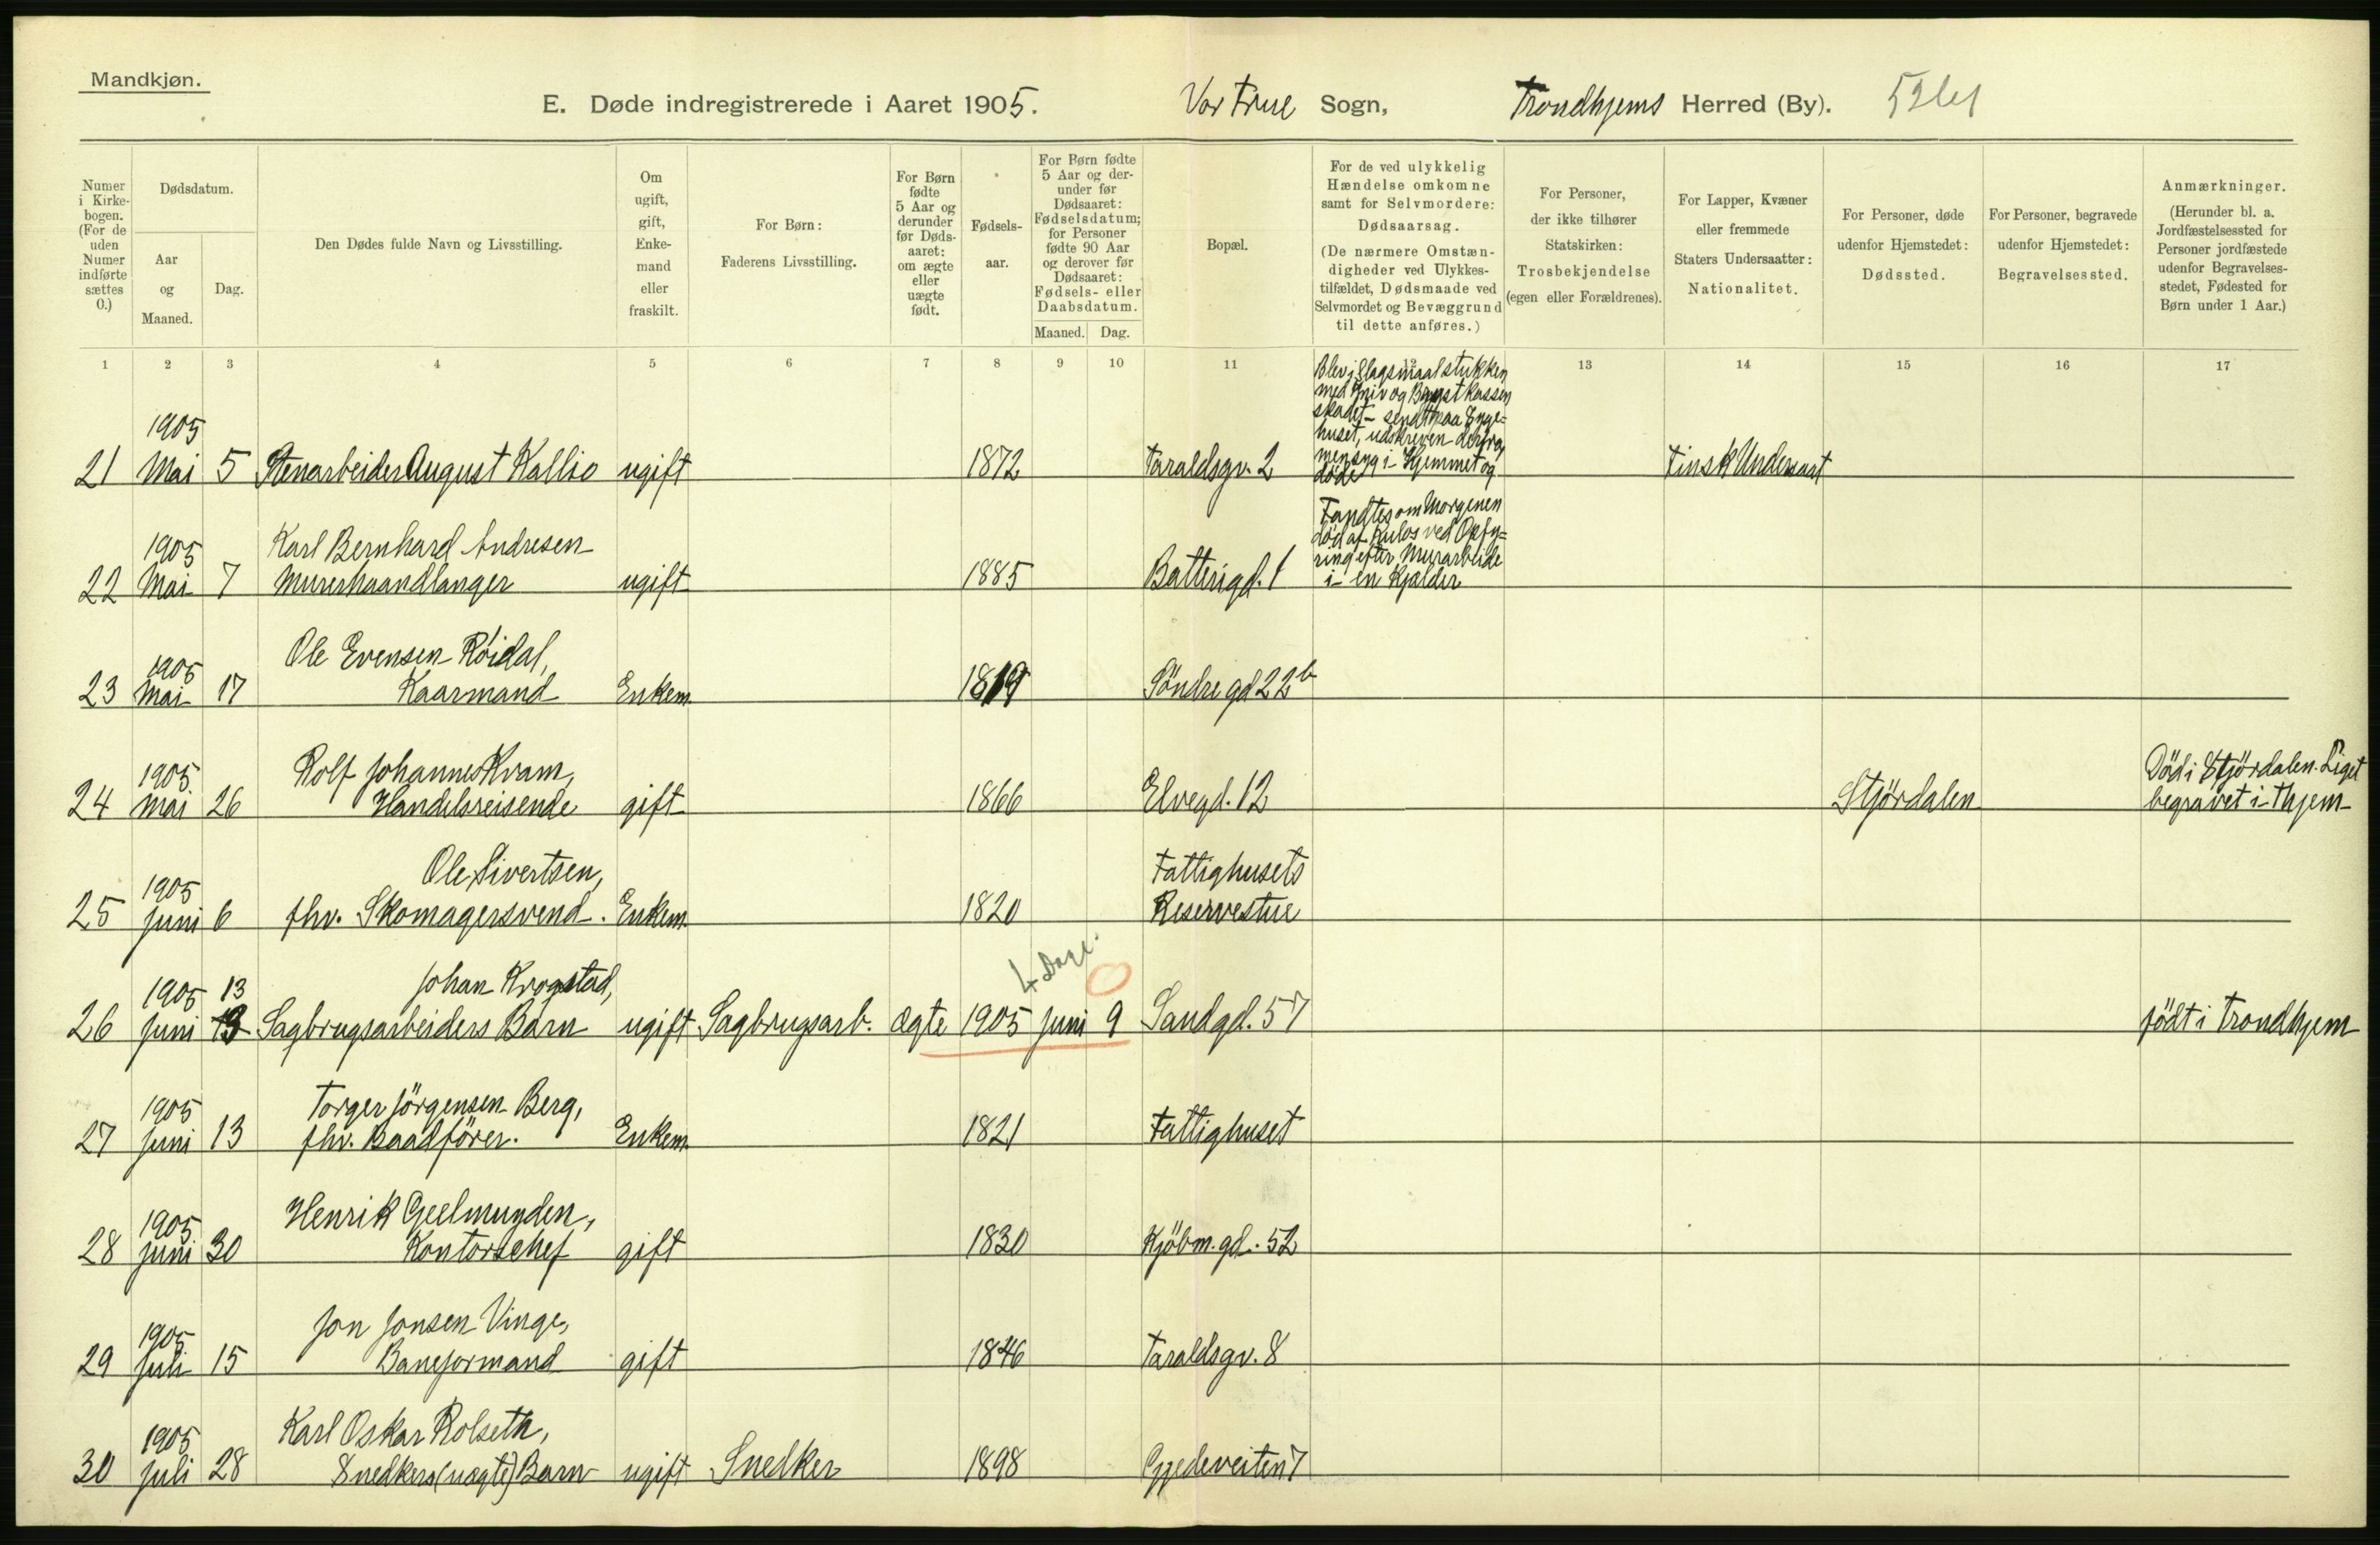 Mandkjøn.
E. Døde indregistrerede i Aaret 1905. Vor Frue Sogn, Trondhjems Herred (By).
Numer i Kirke-bogen. (For de uden Numer indførte sættes 0.)
Dødsdatum.
Aar og Maaned.
Dag.
Den Dødes fulde Navn og Livsstilling.
Om ugift, gift, Enke-mand eller fraskilt.
For Børn: Faderens Livsstilling.
For Børn fødte 5 Aar og derunder før Døds-aaret: om ægte eller uægte født.
Fødsels-aar.
For Børn fødte 5 Aar og der-under før Dødsaaret: Fødselsdatum; for Personer fødte 90 Aar og derover før Dødsaaret: Fødsels- eller Daabsdatum.
Maaned. Dag.
Bopæl.
For de ved ulykkelig Hændelse omkomne samt for Selvmordere: Dødsaarsag. (De nærmere Omstæn-digheder ved Ulykkes-tilfældet, Dødsmaade ved Selvmordet og Bevæggrund til dette anføres.)
For Personer, der ikke tilhører Statskirken: Trosbekjendelse (egen eller Forældrenes).
For Lapper, Kvæner eller fremmede Staters Undersaatter: Nationalitet.
For Personer, døde udenfor Hjemstedet: Dødssted.
For Personer, begravede udenfor Hjemstedet: Begravelsessted.
Anmærkninger. (Herunder bl. a. Jordfæstelsessted for Personer jordfæstede udenfor Begravelses-stedet, Fødested for Børn under 1 Aar.)
1 2 3 4 5 6 7 8 9 10 11 12 13 14 15 16 17
Blev i Slagsmaal stukken
med Kniv og Brystkassen
skadet - sendt paa Syge-
huset, udskreven derfra,
men syg i Hjemmet og
døde
1905
21 Mai 5 Stenarbeider August Kallio ugift 1872 Taraldsgv. 2 Finsk Undersaat
Fandtes om Morgenen
død af Kulos ved Opfy-
ring efter Murarbeide
i en Kjælder
1905 Karl Bernhard Andresen
22 Mai 7 Murerhaandlanger ugift 1885 Batterigd. 1
1905 Ole Evensen Röidal,
23 Mai 17 Kaarmand Enkem. 1819 Söndregd 22b
1905 Rolf Johannes Kvam, Död i Stjördalen. Liget
24 Mai 26 Handelsreisende gift 1866 Elvegd. 12 Stjördalen begravet i Thjem
1905 Ole Sivertsen, Fattighusets
25 Juni 6 fhv. Skomagersvend. Enkem. 1820 Reservestue
4 Dage. 0
1905 13 Johan Krogstad,
26 Juni 13 Sagbrugsarbeiders Barn ugift Sagbrugsarb. ægte 1905 Juni 9 Sandgd. 57 födt i Trondhjem
1905 Torger Jörgensen Berg,
27 Juni 13 fhv. Baadförer. Enkem. 1821 Fattighuset
1905 Henrik Geelmuyden,
28 Juni 30 Kontorschef gift 1830 Kjöbm.gd. 52
1905 Jon Jonsen Vinge,
29 Juli 15 Baneformand gift 1846 Taraldsgv. 8
1905 Karl Oskar Rolseth,
30 Juli 28 Snedkers (uægte) Barn ugift Snedker 1898 Gjedeveiten 7